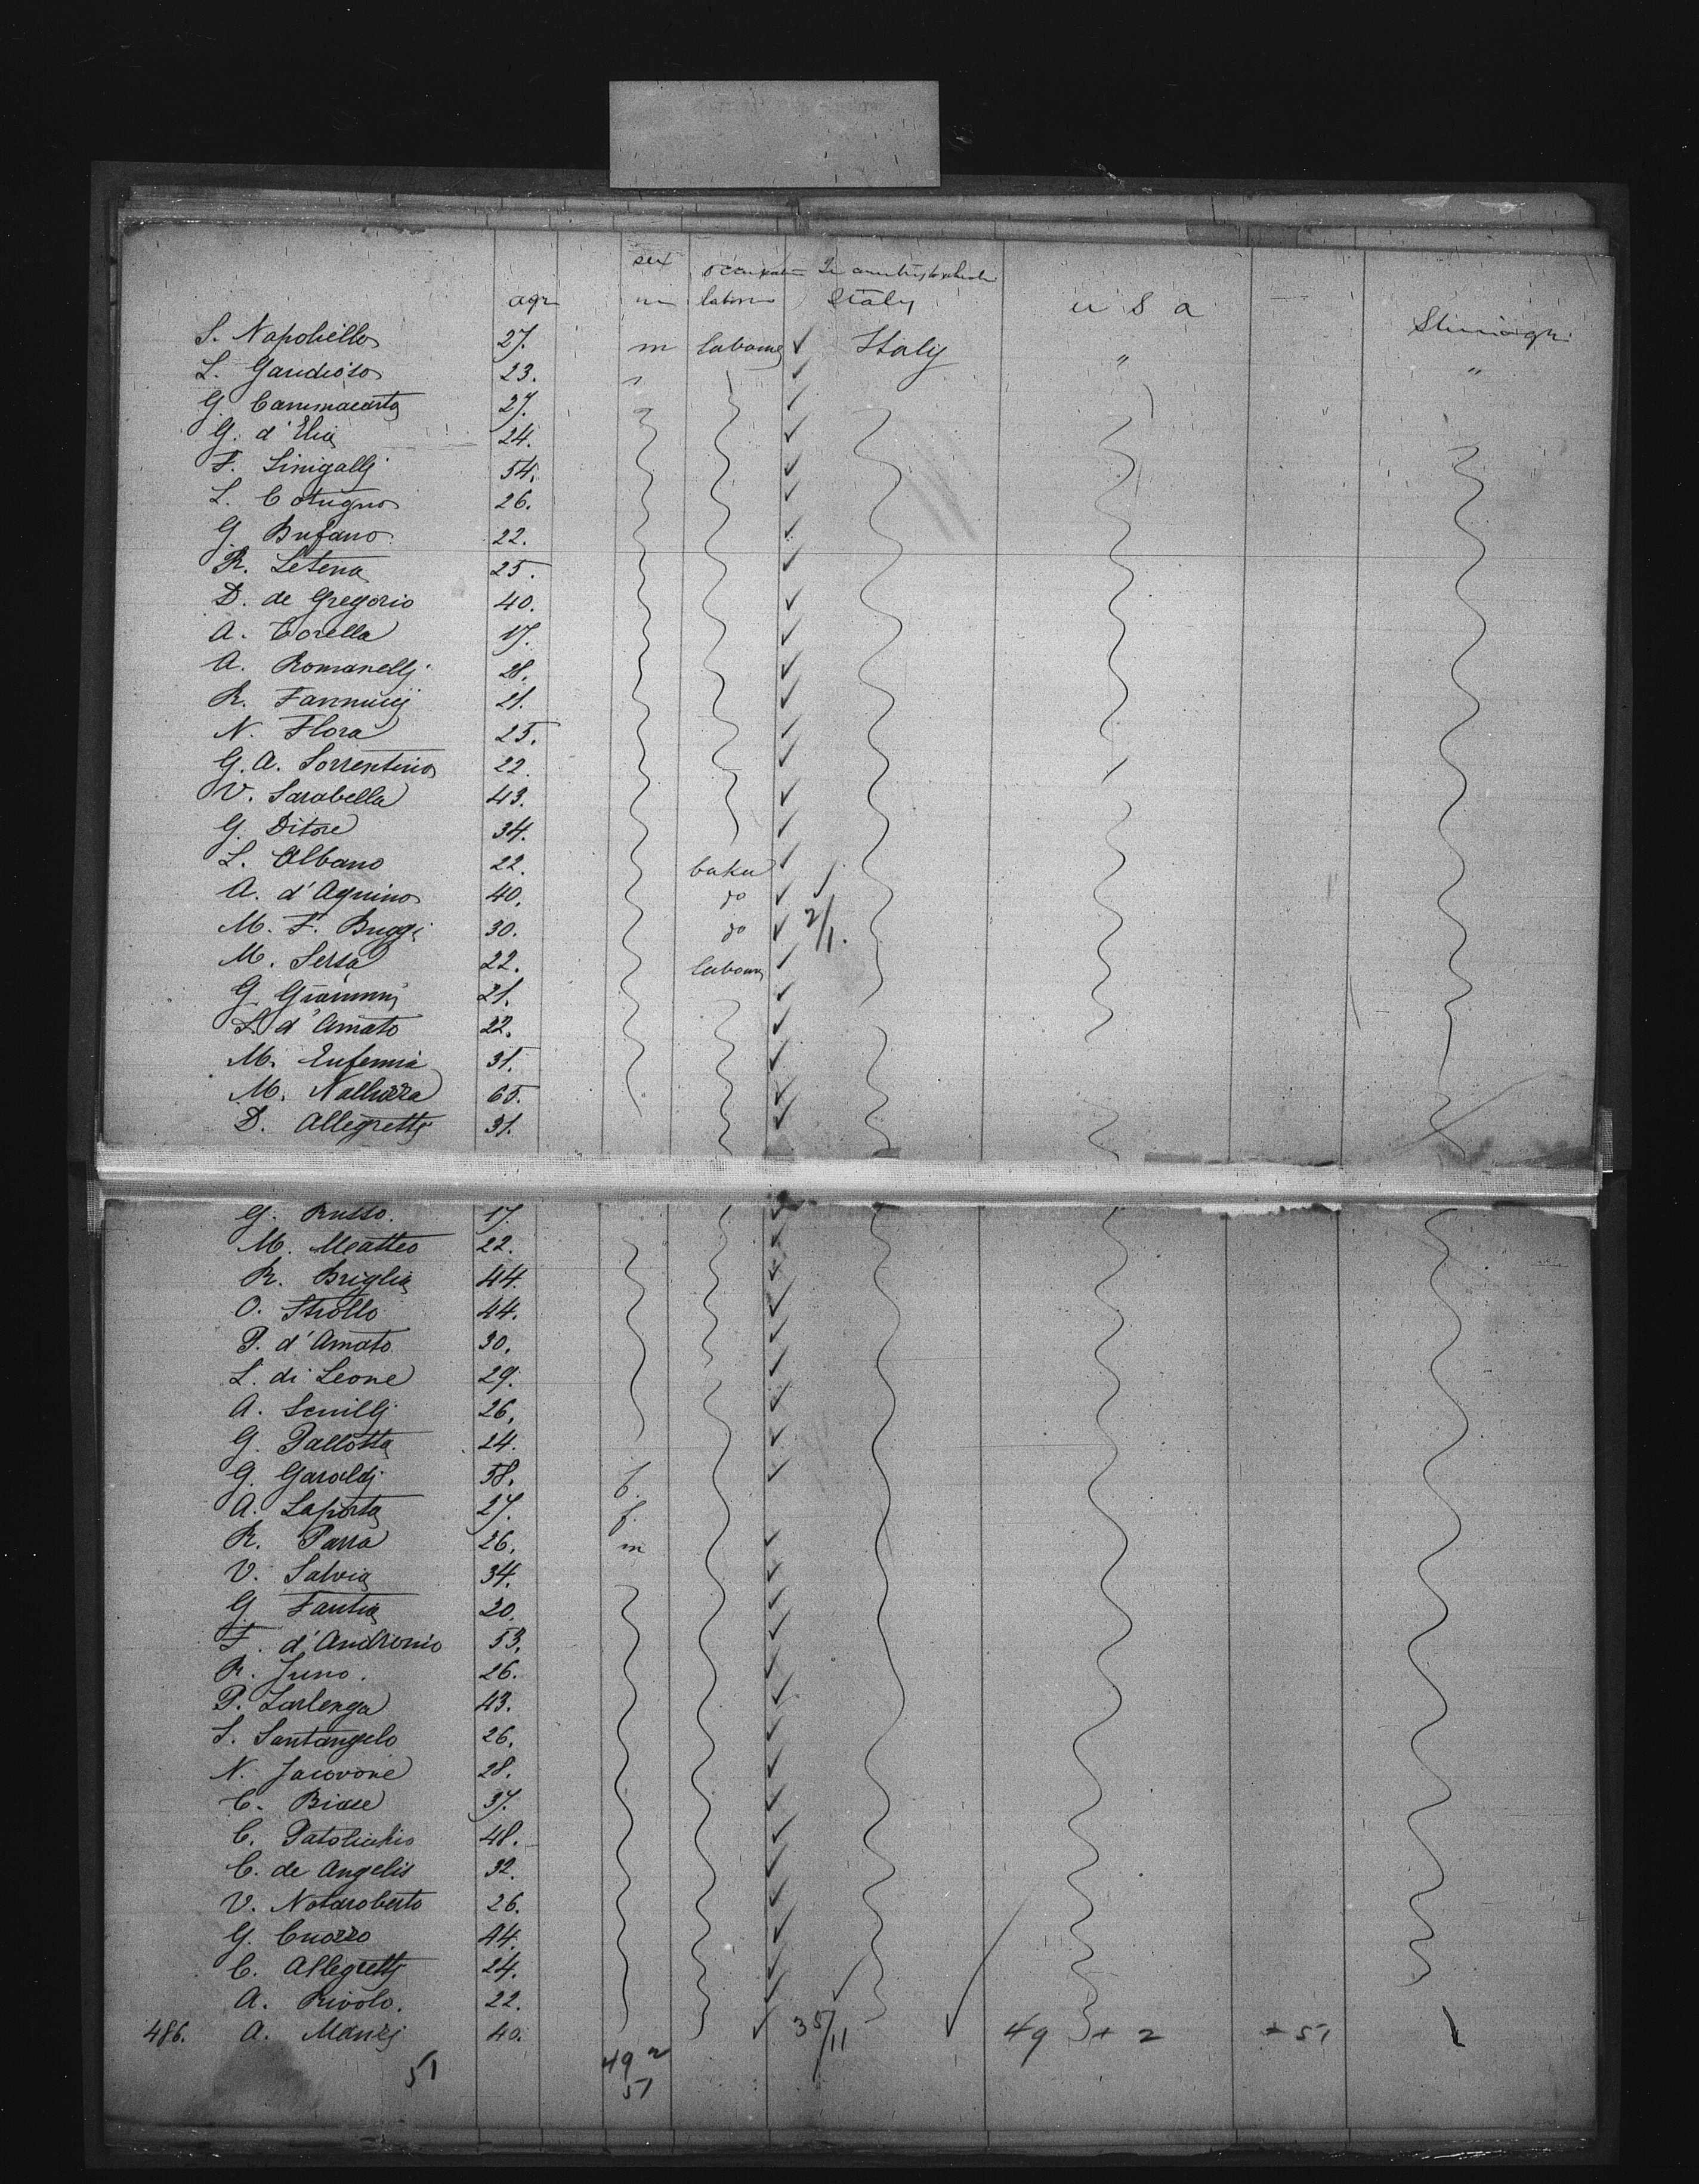 sex occupation
age m labour Italy u S a
S. Napoliello 27. m labour ✓ Italy "
L. Gaudioso 23. " ✓ "
G. Cammacarta 27. ✓
G. d'Elia 24. ✓
F. Sinigallj 54. ✓
L. Cotugno 26. ✓
G. Bufano 22. ✓
R. Letena 25. ✓
D. de Gregorio 40. ✓
A. Corella 17. ✓
A. Romanellj 28. ✓
R. Fannucij 21. ✓
N. Flora 25. ✓
G. A. Sorrentino 22. ✓
V. Sarabella 43. ✓
G. Ditore 34. ✓
L. Albano 22. baker ✓
A. d'Aquino 40. do ✓
M. F. Buggi 30. do ✓ 2/1.
M. Sersa 22. labour ✓
G. Gianninj 21. ✓
L. d'Amato 22. ✓
M. Eufemia 31. ✓
M. 65. ✓
D. Allegrettj 31. ✓
G. Russo. 17. ✓
M. Matteo 22. ✓
R. Briglia 44. ✓
O. Strollo 44. ✓
P. d'Amato 30. ✓
L. di Leone 29. ✓
A. 26. ✓
G. Pallotta 24. ✓
G. Garaldj 58. f. ✓
A. Laporta 27. f.
R. Parra 26. m ✓
V. Salvia 34. ✓
G. Fantia 20. ✓
F. d'Andronio 53. ✓
R. Juno. 26. ✓
P. Zarlenga 43. ✓
S. Santangelo 26. ✓
N. Jacovone 28. ✓
C. Biase 37. ✓
C. Patolicchio 48. ✓
C. de Angelis 32. ✓
V. Notaroberto 26. ✓
G. Cuozzo 44. ✓
C. Allegrettj 24. ✓
A. Rivolo. 22. ✓
486. A. 40. ✓ 35/11 ✓ 49 + 2 = 51
51 49 2
51